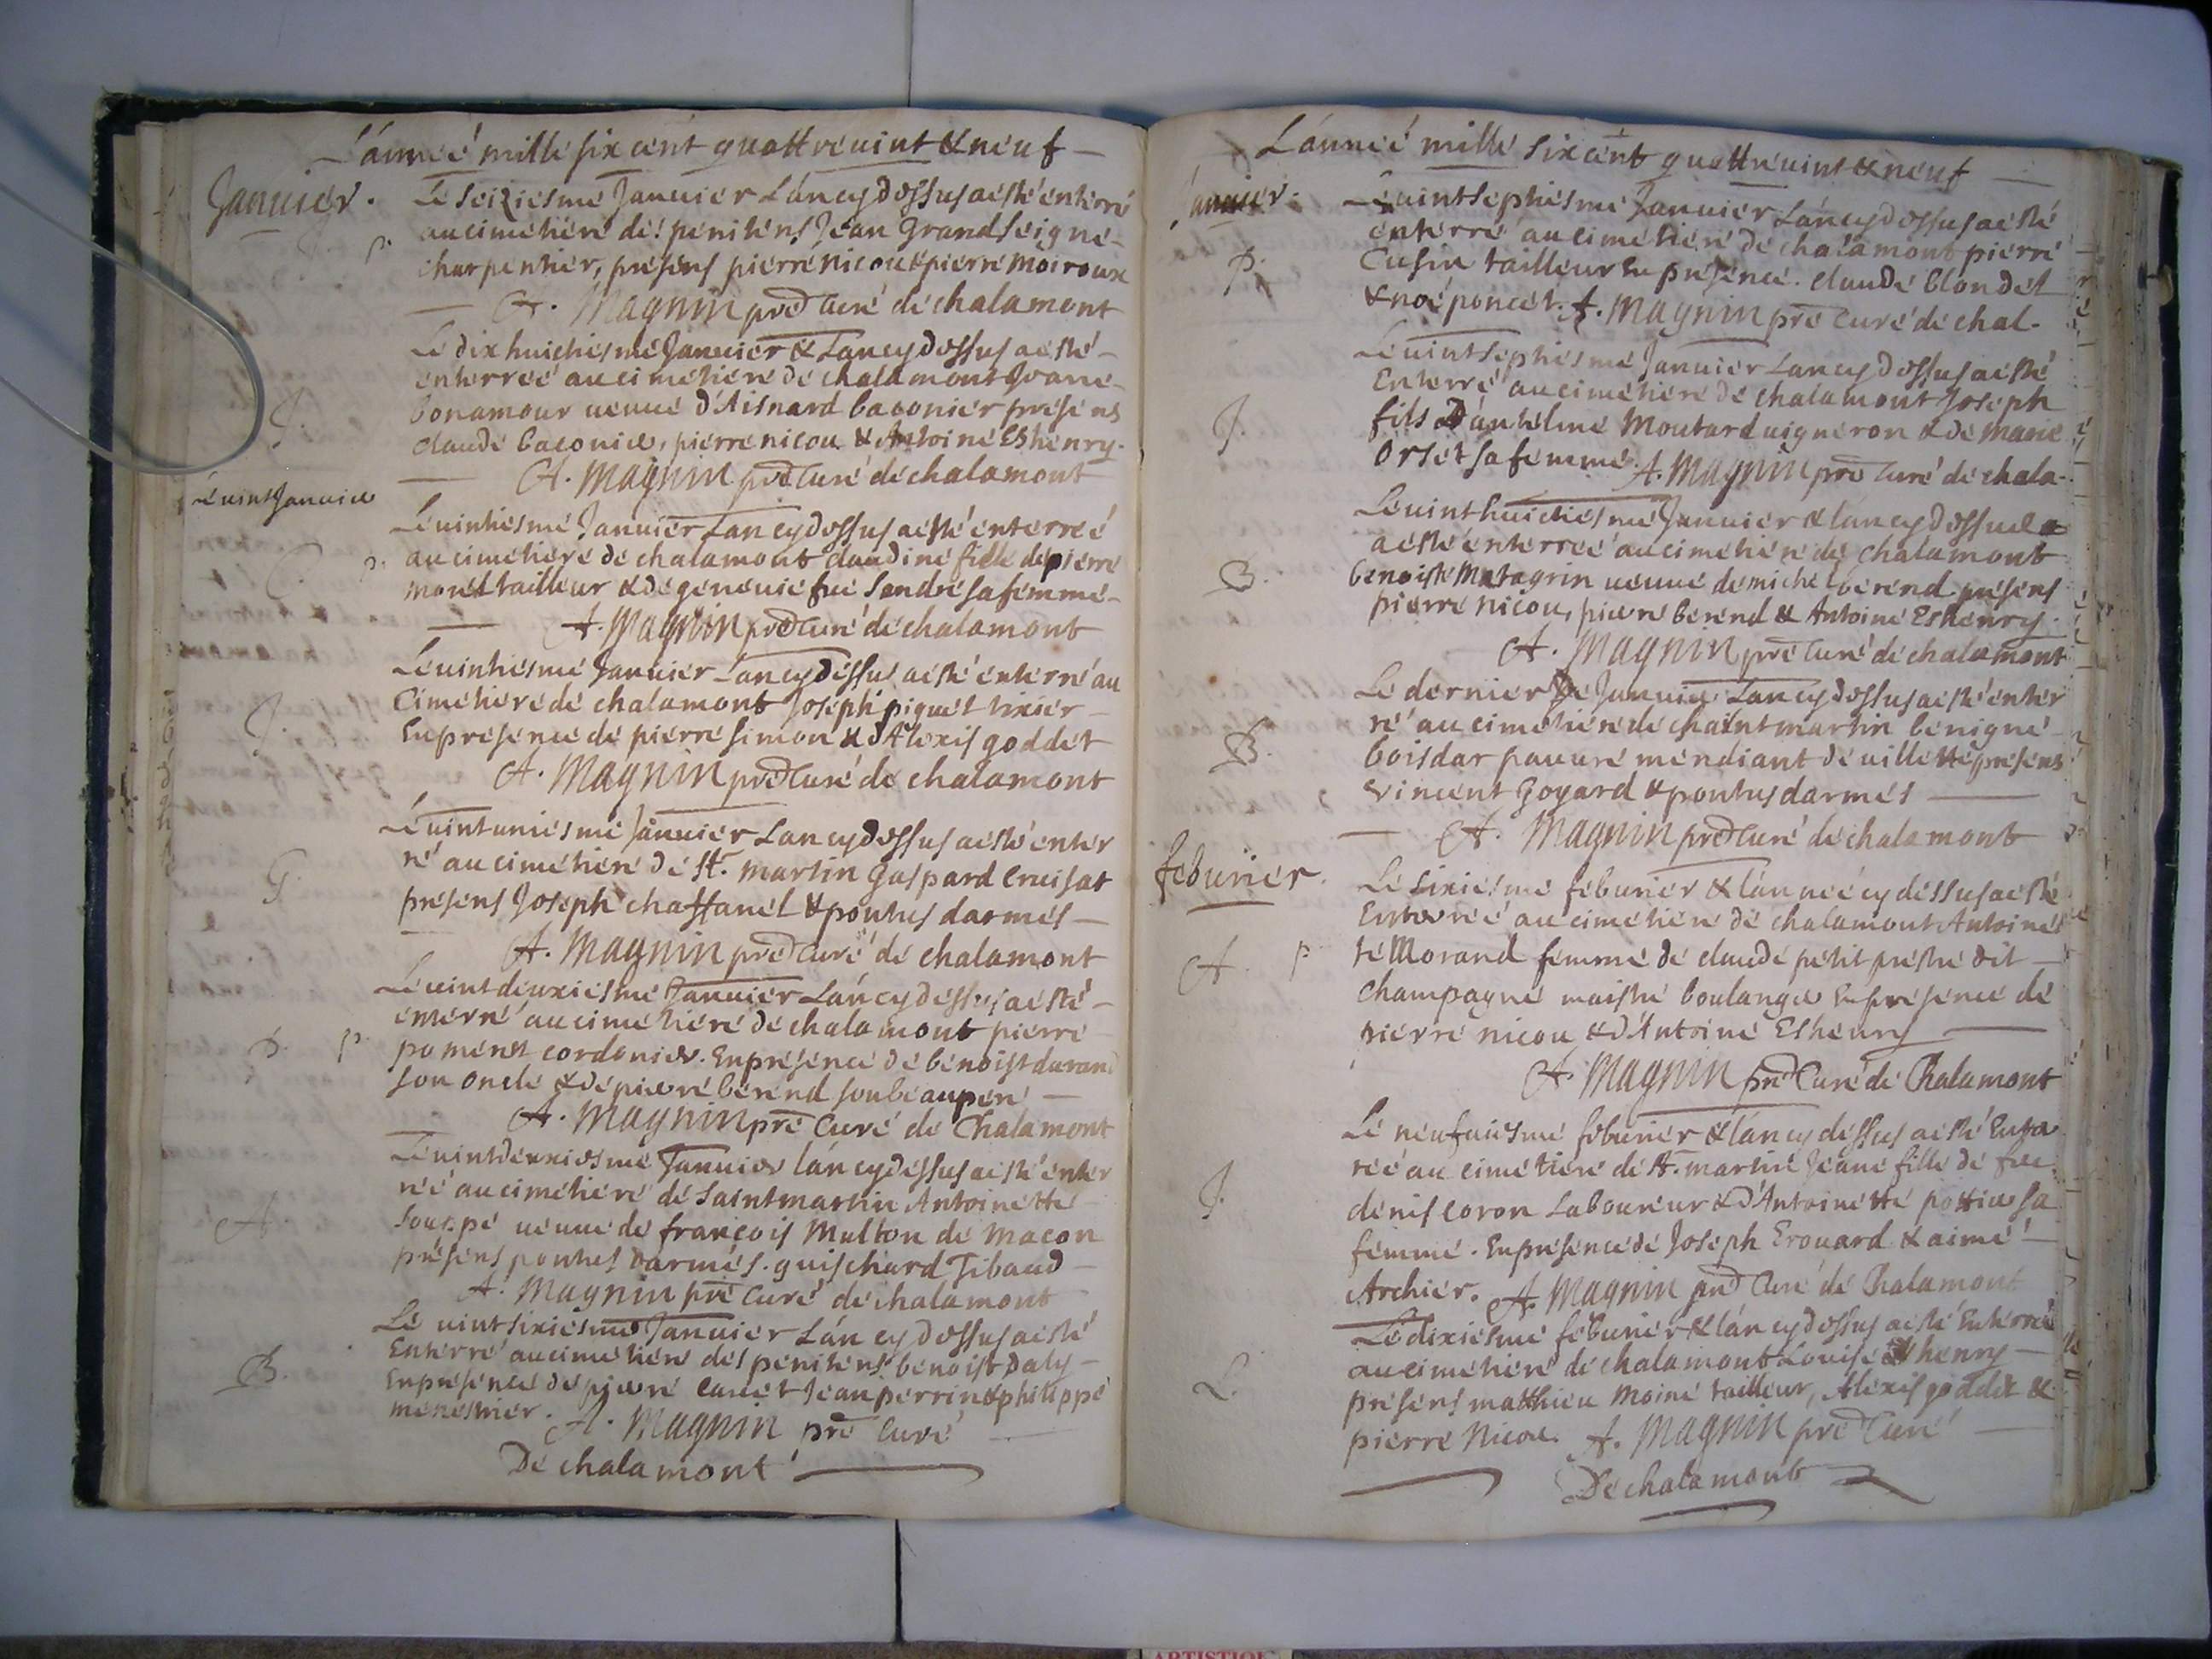 L'année mille six cent quattrevint & neuf
Januier.
Le seiziesme Januier L'an cy dessus a esté enterré
au cimetiere des penitens Jean Grandseigne
J. p.
charpentier, presens pierre nicou & pierre moiroux
A. Magnin pre Curé de chalamont
Le dix huictiesme Januier & L'an cy dessus a esté
enterreé au cimetiere de chalamont Jvane
bonamour veuue d'Aisnard baconier presens
J.
claude baconier, pierre nicou & Antoine Eshenry.
A. Magnin pre Curé de chalamont
Le vint Januier
Le vintiesme Januier L'an cy dessus a esté enterreé
au cimetiere de chalamont claudine fille de pierre
C. p.
morel tailleur & de geneuiefue Sendre sa femme
A. Magnin pre Curé de chalamont
Le vintiesme Januier L'an cy dessus a esté enterré au
Cimetiere de chalamont Joseph piquet tixier
J.
En presence de pierre simon & d'Alexis goddet
A. Magnin pre Curé de chalamont
Le vintuniesme Januier L'an cy dessus a esté enter
ré au cimetiere de St. martin Gaspard Cruisat
G.
presens Joseph chaffanel & pontus darmes
A. Magnin pre Curé de chalamont
Le vintdeuxiesme Januier L'an cy dessus a esté
enterré au cimetiere de chalamont pierre
P. p.
poment cordonier. En presence de benoist durand
son oncle & de pierre berend son beaupere
A. Magnin pre Curé de Chalamont
Le vintdeuxiesme Januier L'an cy dessus a esté enter
reé au cimetiere de Saint martin Antoinette
A.
veuue de françois Multon de Macon
presens pontus darmes. guischard Tibaud
A. Magnin pre Curé de chalamont
Le vint sixiesme Januier L'an cy dessus a esté
Enterré au cimetiere des penitens benoist Daly
B.
En presence de pierre Canet Jean perrin & philippe
menestrier. A. Magnin pre Curé
De chalamont
L'anneé mille six cent quattrevint & neuf
Januier.
Le vintseptiesme Januier L'an cy dessus a esté
enterré au cimetiere de chalamont pierre
P.
Cusin tailleur En presence. claude blondel
& noé poncet. A. Magnin pre Curé de chal.
Le vintseptiesme Januier L'an cy dessus a esté
Enterré au cimetiere de chalamont Joseph
J.
fils D'anthelme Moutard vigneron & de Marie
Orset sa femme. A. Magnin pre Curé de chala.
Le vinthuictiesme Januier & l'an cy dessus
a esté enterreé au cimetiere de chalamont
B.
benoiste Matagrin veuue de michel berend presens
pierre nicou, pierre berend & Antoine Eshenry.
A. Magnin pre Curé de chalamont
Le dernier De Januier L'an cy dessus a esté enter
ré au cimetiere de chaint martin benigne
B.
boisdar pauure mendiant de villette presens
Vincent Goyard & pontus darmes
A. Magnin pre Curé de chalamont
feburier.
Le sixiesme feburier & l'anneé cy dessus a esté
Enterreé au cimetiere de chalamont Antoinet
A. p.
te Morand femme de claude petit prestre dit
champagne maistre boulanger En presence de
pierre nicou & d'Antoine Eshenry
A. Magnin pre Curé de Chalamont
Le neufuiesme feburier & l'an cy dessus a esté Enter
reé au cimetiere de St. martin Jeane fille de feu
J.
denis coron Laboureur & d'Antoinette pottier sa
femme. En presence de Joseph Erouard & aimé
Archier. A. Magnin pre Curé de Chalamont
Le dixiesme feburier & l'an cy dessus a esté Enterreé
au cimetiere de chalamont Louise Eshenry
L.
presens matthieu Moine tailleur, Alexis goddet &
pierre Nicou. A. Magnin pre Curé
De chalamont